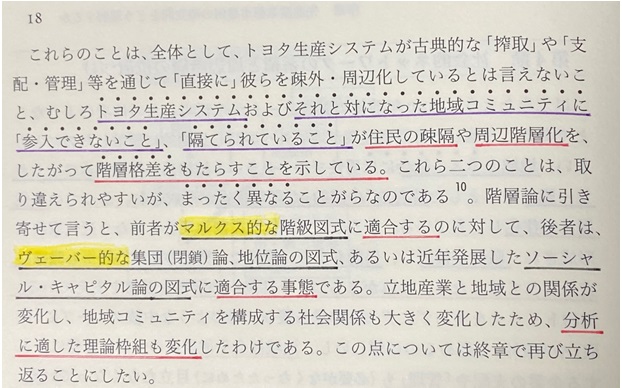 18
これらのことは、全体として、トヨタ生産システムが古典的な「搾取」や「支
配・管理」等を通じて「直接に」彼らを疎外・周辺化しているとは言えないこ
と、むしろトヨタ生産システムおよびそれと対になった地域コミュニティに
「参入できないこと」、「隔てられていること」が住民の疎隔や周辺階層化を、
したがって階層格差をもたらすことを示している。これら二つのことは、取
り違えられやすいが、まったく異なることがらなのである10。階層論に引き
寄せて言うと、前者がマルクス的な階級図式に適合するのに対して、後者は、
ヴェーバー的な集団(閉鎖)論、地位論の図式、あるいは近年発展したソーシャ
ル・キャピタル論の図式に適合する事態である。立地産業と地域との関係が
変化し、地域コミュニティを構成する社会関係も大きく変化したため、分析
に適した理論枠組も変化したわけである。この点については終章で再び立ち
返ることにしたい。